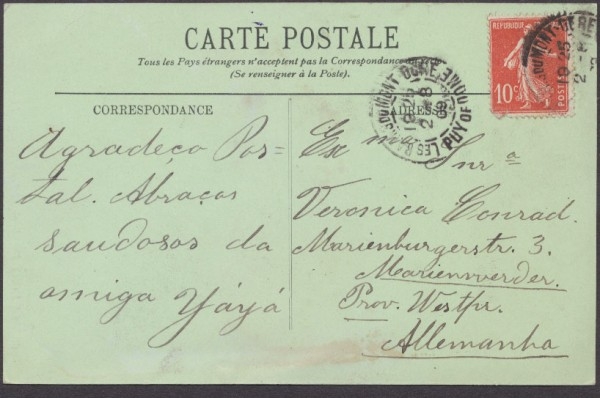 CARTE POSTALE
Tous les Pays étrangers n'acceptent pas la Correspondance
(Se renseigner à la Poste).
CORRESPONDANCE
ADRESSE
REPUBLIQUE
10c
POSTES
19 25
2 -8
09
PUY DE DOME
Agradeço Pos-
tal. Abraços
saudosos da
amiga Yáyá
Exma Snra
Veronica Conrad.
Marienburgerstr. 3.
Marienwerder.
Prov. Westpr.
Allemanha